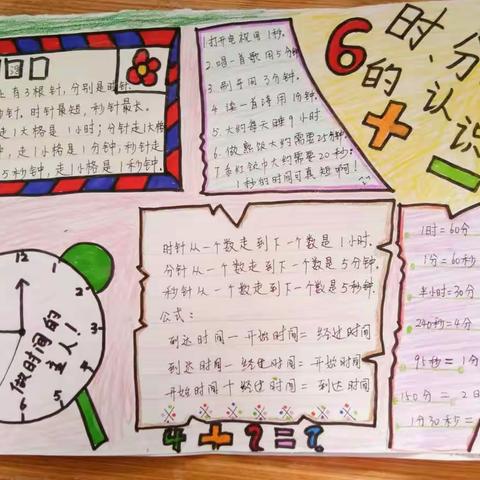 时、分
的认识
上有3根针，分别是时针
秒针。时针最短，秒针最长。
走1大格是1小时；分针走1大格
钟，走1小格是1分钟；秒针走
5秒钟，走1小格是1秒钟。
1.打开电视用1秒。
2.唱一首歌用5分钟
3.刷牙用3分钟。
4.读一首诗用1分钟。
5.大约每天睡9小时
6.做熟饭大约需要25分钟。
7.系红领巾大约需要20秒。
1秒的时间可真短啊！
12
1
2
3
4
5
6
做时间的
主人！
时针从一个数走到下一个数是1小时。
分针从一个数走到下一个数是5分钟。
秒针从一个数走到下一个数是5秒。
公式：
到达时间－开始时间＝经过时间
到达时间－经过时间＝开始时间
开始时间＋经过时间＝到达时间
4+?=?
1时=60分
1分=60秒
半小时=30分
240秒=4分
95秒=1分
150分=2
1分30秒=